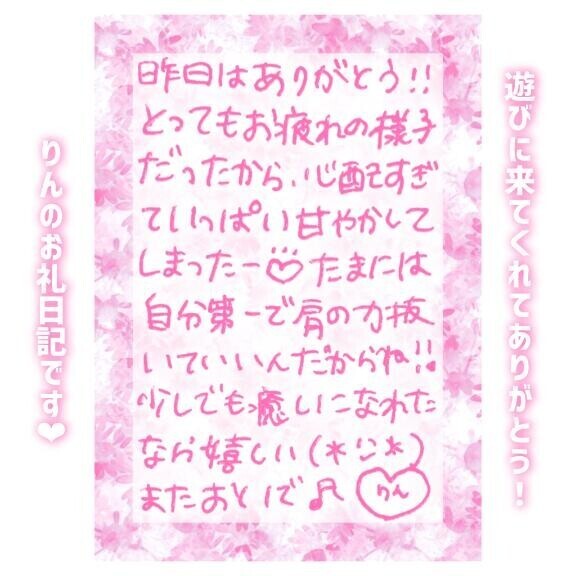 遊びに来てくれてありがとう!
昨日はありがとう!!
とってもお疲れの様子
だったから、心配すぎ
ていっぱい甘やかして
しまったー♡たまには
自分第一で肩の力抜
いていいんだからね!!
少しでも癒しになれた
なら嬉しい(*ܸ*)
またあそぼ♪りん
りんのお礼日記です❤